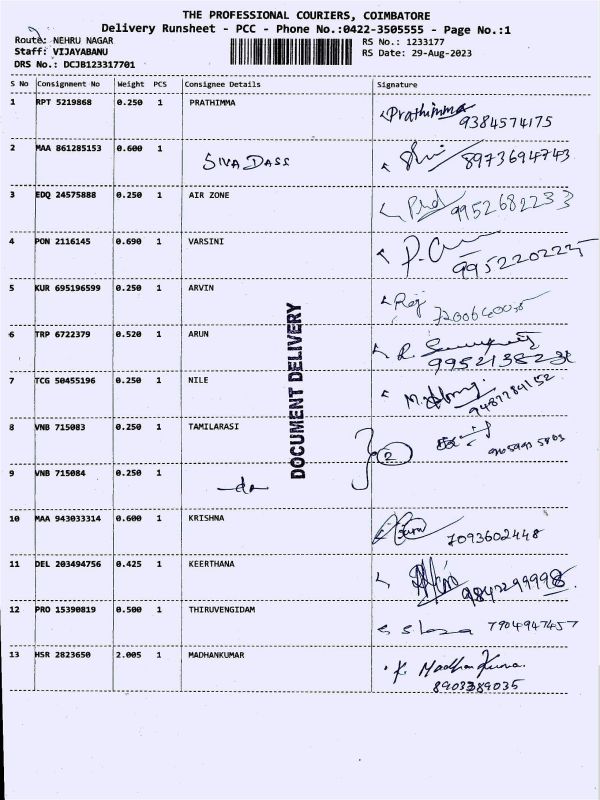 THE PROFESSIONAL COURIERS, COIMBATORE
Delivery Runsheet - PCC - Phone No.:0422-3505555 - Page No.:1
Route: NEHRU NAGAR
RS No.: 1233177
Staff: VIJAYABANU
RS Date: 29-Aug-2023
DRS No.: DCJB123317701
S No Consignment No Weight PCS Consignee Details Signature
1 RPT 5219868 0.250 1 PRATHIMMA Prathimma
9384574175
2 MAA 861285153 0.600 1 SIVA DASS 8973694743
3 EDQ 24575888 0.250 1 AIR ZONE 9952682233
4 PON 2116145 0.690 1 VARSINI
5 KUR 695196599 0.250 1 ARVIN
6 TRP 6722379 0.520 1 ARUN
7 TCG 50455196 0.250 1 NILE
8 VNB 715083 0.250 1 TAMILARASI 2
9 VNB 715084 0.250 1 do
10 MAA 943033314 0.600 1 KRISHNA 7093602448
11 DEL 203494756 0.425 1 KEERTHANA
12 PRO 15390819 0.500 1 THIRUVENGIDAM 7904947457
13 HSR 2823650 2.005 1 MADHANKUMAR K. Madhan Kumar
8903389035
DOCUMENT DELIVERY